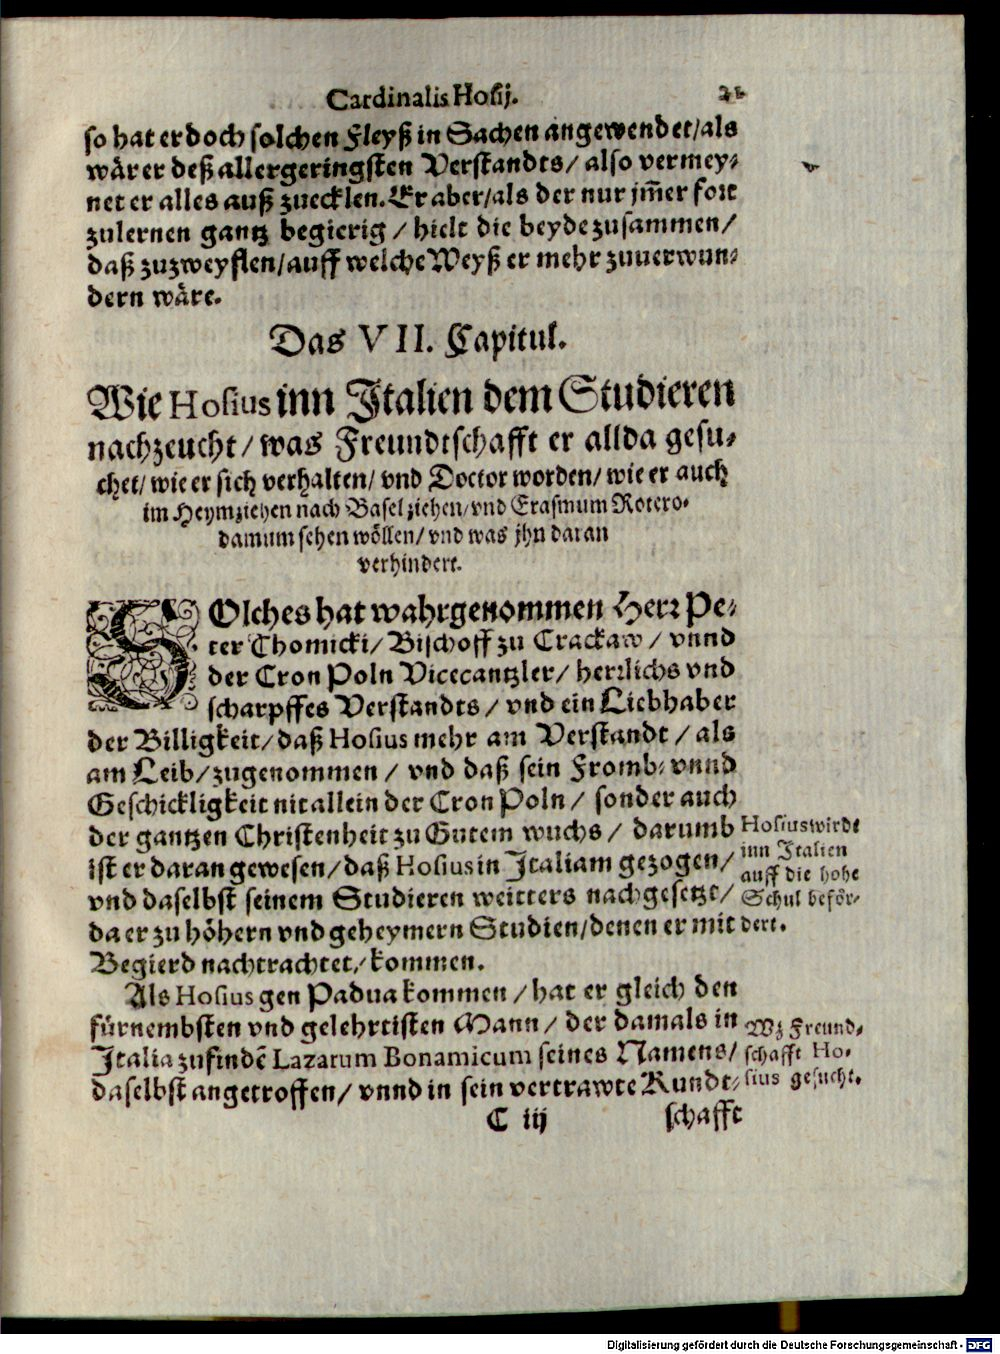 Cardinalis Hosij. 21
so hat er doch solchen Fleyß in Sachen angewendet/als
wär er deß allergeringsten Verstandts/ also vermey-
net er alles auß zuecklen. Er aber/als der nur jm̃er fort
zulernen gantz begierig / hielt die beyde zusammen/
daß zuzweyflen/auff welche Weyß er mehr zuuerwun-
dern wäre.
Das VII. Capitul.
Wie Hosius inn Italien dem Studieren
nachzeucht/ was Freundtschafft er allda gesu-
chet/ wie er sich verhalten/ vnd Doctor worden/ wie er auch
im Heymziehen nach Basel ziehen/vnd Erasmum Rotero-
damum sehen wöllen/ vnd was jhn daran
verhindert.
SOlches hat wahrgenommen Herr Pe-
ter Thomicki/ Bischoff zu Crackaw / vnnd
der Cron Poln Vicecantzler/ herrlichs vnd
scharpffes Verstandts / vnd ein Liebhaber
der Billigkeit/daß Hosius mehr am Verstandt / als
am Leib/zugenommen / vnd daß sein Fromb- vnnd
Geschickligkeit nit allein der Cron Poln/ sonder auch
der gantzen Christenheit zu Gutem wuchs / darumb
ist er daran gewesen/daß Hosius in Italiam gezogen/
vnd daselbst seinem Studieren weitters nachgesetzt/
da er zu höhern vnd geheymern Studien/denen er mit
Begierd nachtrachtet/kommen.
Hosius wirdt
inn Italien
auff die hohe
Schul beför-
dert.
Als Hosius gen Padua kommen / hat er gleich den
fürnembsten vnd gelehrtisten Mann/ der damals in
Italia zufindẽ Lazarum Bonamicum seines Namens/
daselbst angetroffen/ vnnd in sein vertrawte Kundt-
Wz Freund-
schafft Ho-
sius gesucht.
C iij schafft
Digitalisierung gefördert durch die Deutsche Forschungsgemeinschaft - DFG